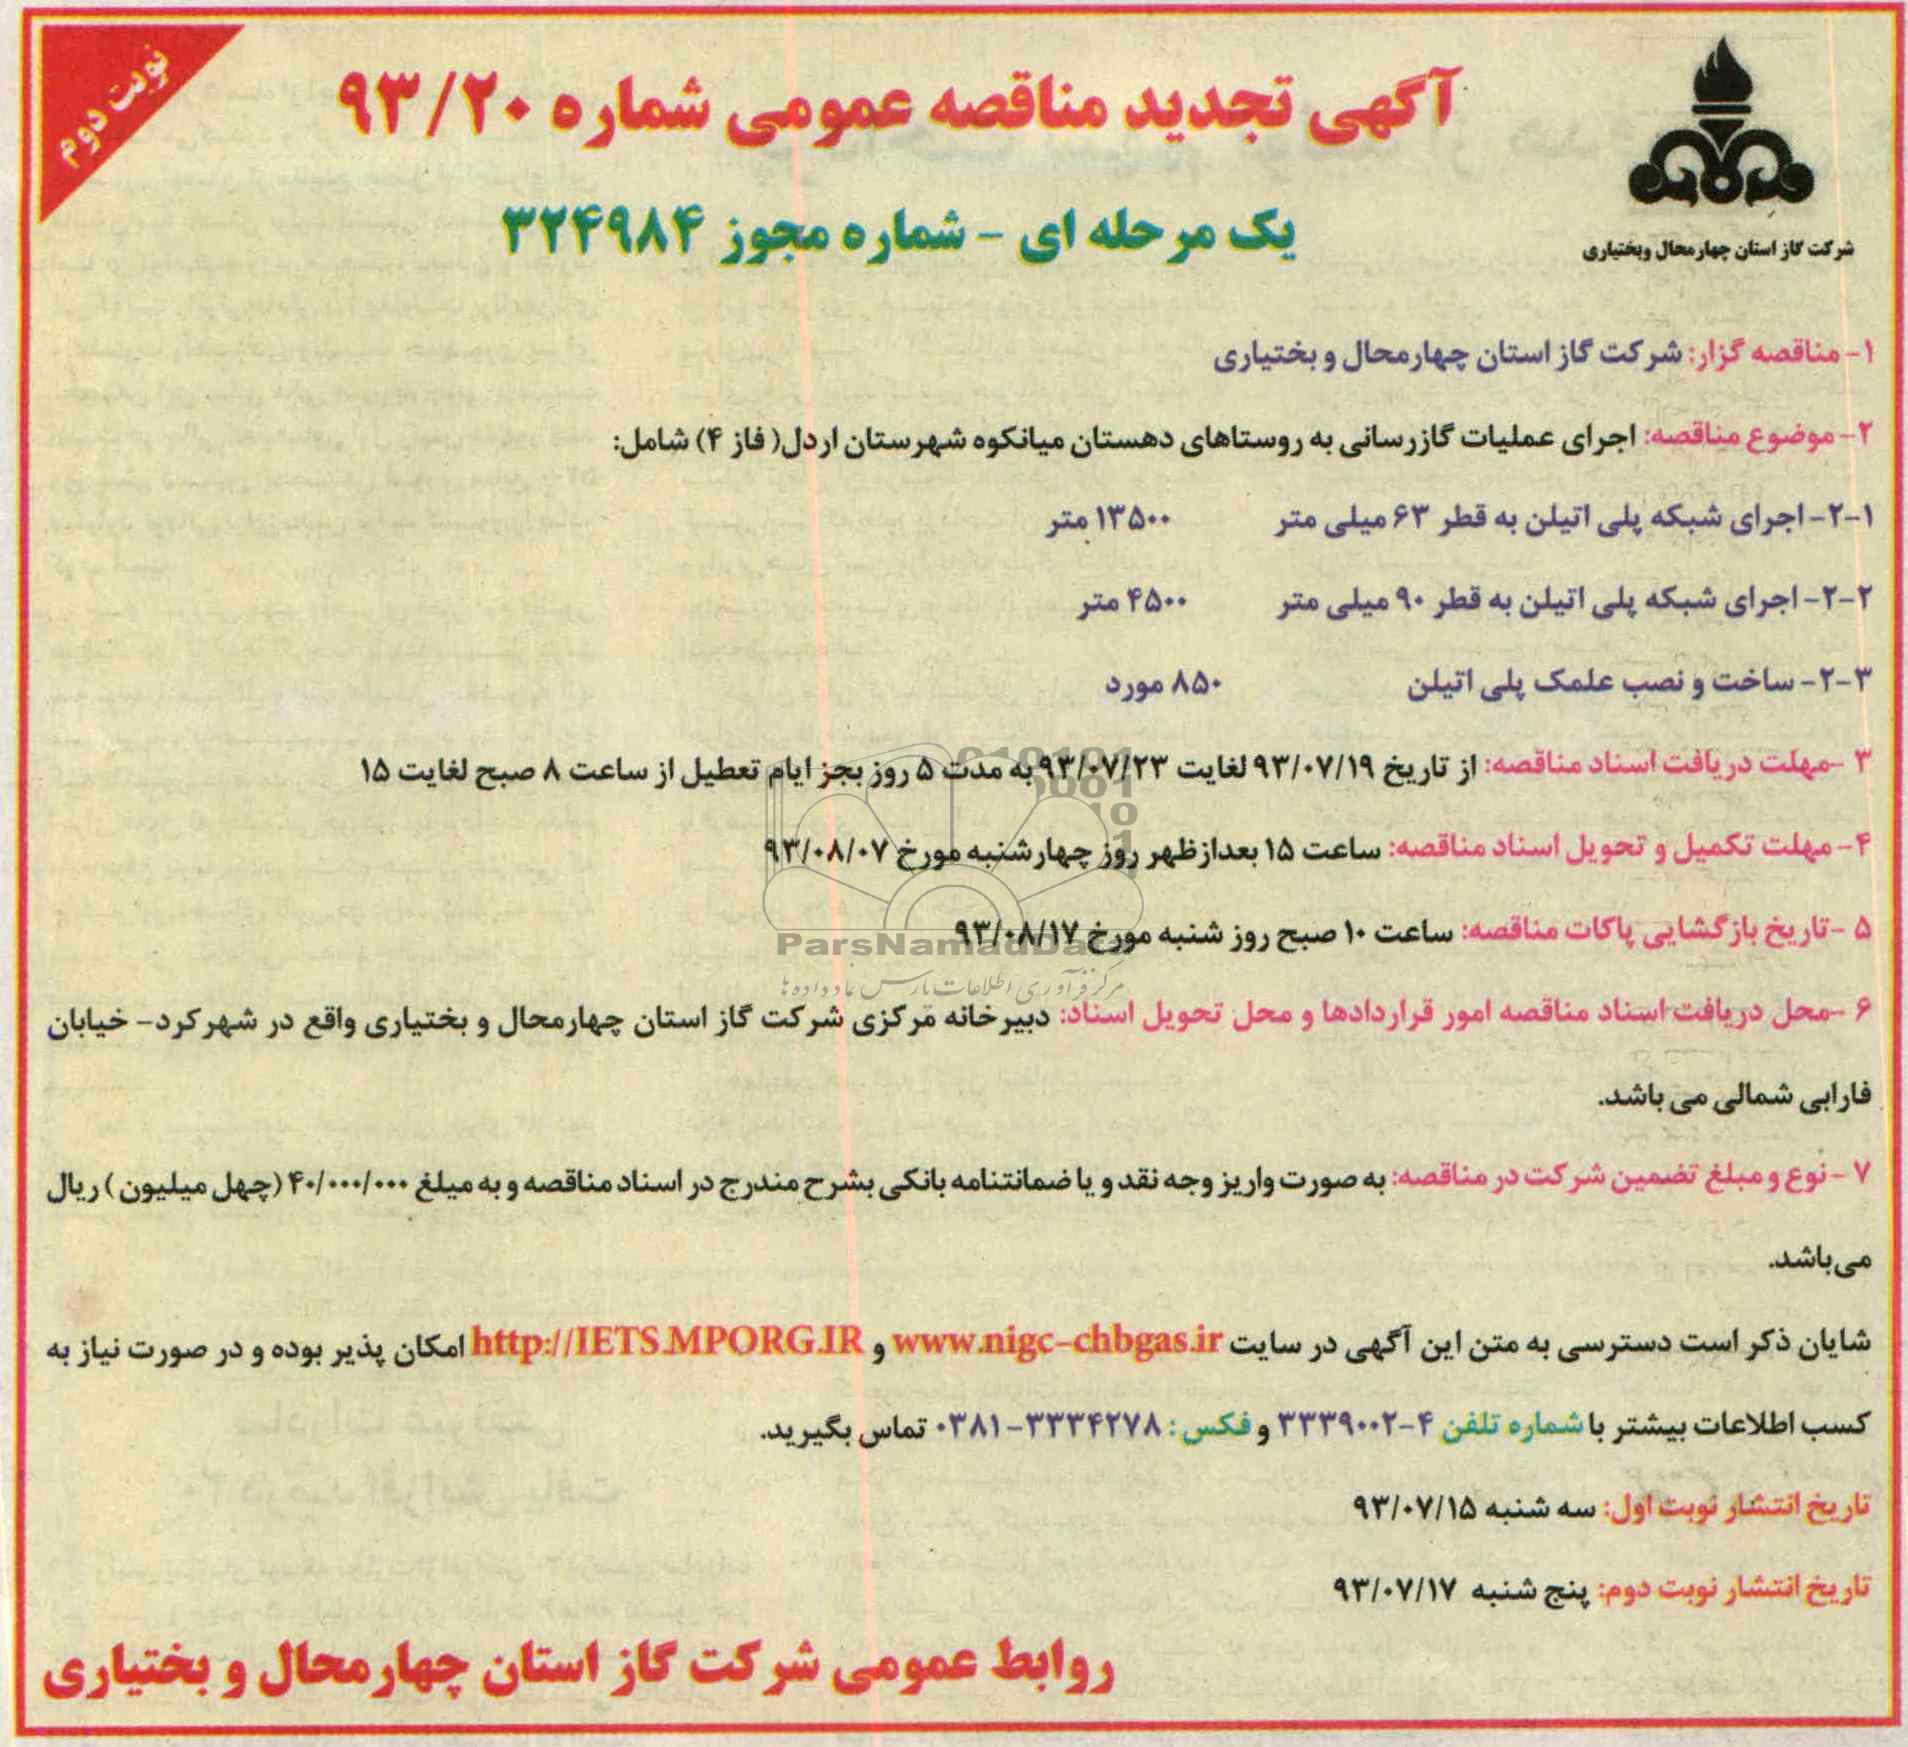 نوبت دوم
آگهی تجدید مناقصه عمومی شماره ۹۳/۲۰
یک مرحله ای - شماره مجوز ۳۲۴۹۸۴
شرکت گاز استان چهارمحال وبختیاری
۱- مناقصه گزار: شرکت گاز استان چهارمحال و بختیاری
۲- موضوع مناقصه: اجرای عملیات گازرسانی به روستاهای دهستان میانکوه شهرستان اردل( فاز ۴) شامل:
۲-۱- اجرای شبکه پلی اتیلن به قطر ۶۳ میلی متر ۱۳۵۰۰ متر
۲-۲- اجرای شبکه پلی اتیلن به قطر ۹۰ میلی متر ۴۵۰۰ متر
۲-۳- ساخت و نصب علمک پلی اتیلن ۸۵۰ مورد
۳ -مهلت دریافت اسناد مناقصه: از تاریخ ۹۳/۰۷/۱۹ لغایت ۹۳/۰۷/۲۳ به مدت ۵ روز بجز ایام تعطیل از ساعت ۸ صبح لغایت ۱۵
۴- مهلت تکمیل و تحویل اسناد مناقصه: ساعت ۱۵ بعدازظهر روز چهارشنبه مورخ ۹۳/۰۸/۰۷
۵ -تاریخ بازگشایی پاکات مناقصه: ساعت ۱۰ صبح روز شنبه مورخ ۹۳/۰۸/۱۷
ParsNamadData
مرکز فرآوری اطلاعات پارس نماد داده ها
۶ -محل دریافت اسناد مناقصه امور قراردادها و محل تحویل اسناد: دبیرخانه مرکزی شرکت گاز استان چهارمحال و بختیاری واقع در شهرکرد- خیابان
فارابی شمالی می باشد.
۷ -نوع و مبلغ تضمین شرکت در مناقصه: به صورت واریز وجه نقد و یا ضمانتنامه بانکی بشرح مندرج در اسناد مناقصه و به میلغ ۴۰/۰۰۰/۰۰۰ (چهل میلیون ) ریال
می‌باشد.
شایان ذکر است دسترسی به متن این آگهی در سایت www.nigc-chbgas.ir و http://IETS.MPORG.IR امکان پذیر بوده و در صورت نیاز به
کسب اطلاعات بیشتر با شماره تلفن ۴-۳۳۳۹۰۰۲ و فکس : ۳۳۳۴۲۷۸-۰۳۸۱ تماس بگیرید.
تاریخ انتشار نوبت اول: سه شنبه ۹۳/۰۷/۱۵
تاریخ انتشار نوبت دوم: پنج شنبه ۹۳/۰۷/۱۷
روابط عمومی شرکت گاز استان چهارمحال و بختیاری